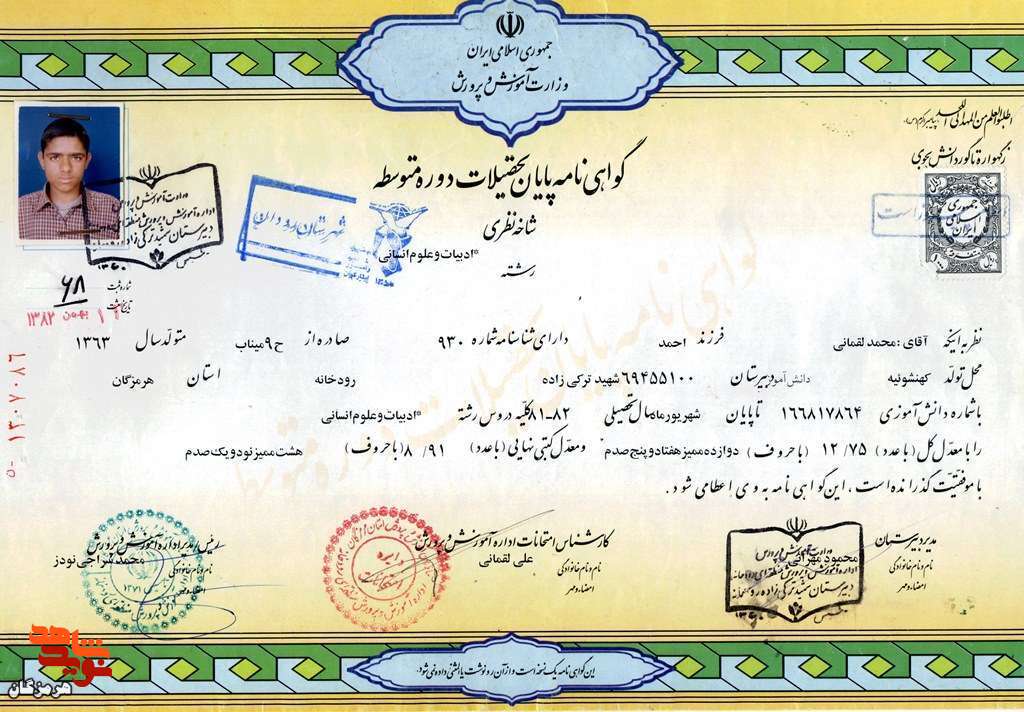 جمهوری اسلامی ایران
وزارت آموزش و پرورش
اطلبوا العلم من المهد الی اللحد پیامبر اکرم (ص)
ز گهواره تا گور دانش بجوی
گواهی نامه پایان تحصیلات دوره متوسطه
شاخه نظری
*ادبیات و علوم انسانی
رشته
شهرستان رودان
جمهوری اسلامی ایران
شماره ثبت ۶۸
تاریخ ثبت
۱۱ بهمن ۱۳۸۲
۱۳۰۷۰۸۶
نظر به اینکه آقای : محمد لقمانی فرزند احمد دارای شناسنامه شماره ۹۳۰ صادره از ح۹میناب متولد سال ۱۳۶۳
محل تولد کهنشوئیه دانش آموز دبیرستان ۶۹۴۵۵۱۰۰شهید ترکی زاده رودخانه استان هرمزگان
با شماره دانش آموزی ۱۶۶۸۱۷۸۶۴ تا پایان شهریورماه سال تحصیلی ۸۲-۸۱ کلیه دروس رشته *ادبیات و علوم انسانی
را با معدل کل (با عدد) ۱۲/۷۵ (با حروف) دوازده ممیز هفتاد و پنج صدم و معدل کتبی نهایی (با عدد) ۸/۹۱ (با حروف) هشت ممیز نود و یک صدم
با موفقیت گذرانده است ، این گواهی نامه به وی اعطا می شود .
مدیر دبیرستان
نام و نام خانوادگی
امضاء و مهر
وزارت آموزش و پرورش
کارشناس امتحانات اداره آموزش و پرورش
علی لقمانی
نام و نام خانوادگی
امضاء و مهر
رئیس / مدیر اداره آموزش و پرورش
محمد سراجی نودز
نام و نام خانوادگی
این گواهی نامه یک نسخه است و از آن رونوشت یا المثنی داده نمی شود.
نوید شاهد
هرمزگان